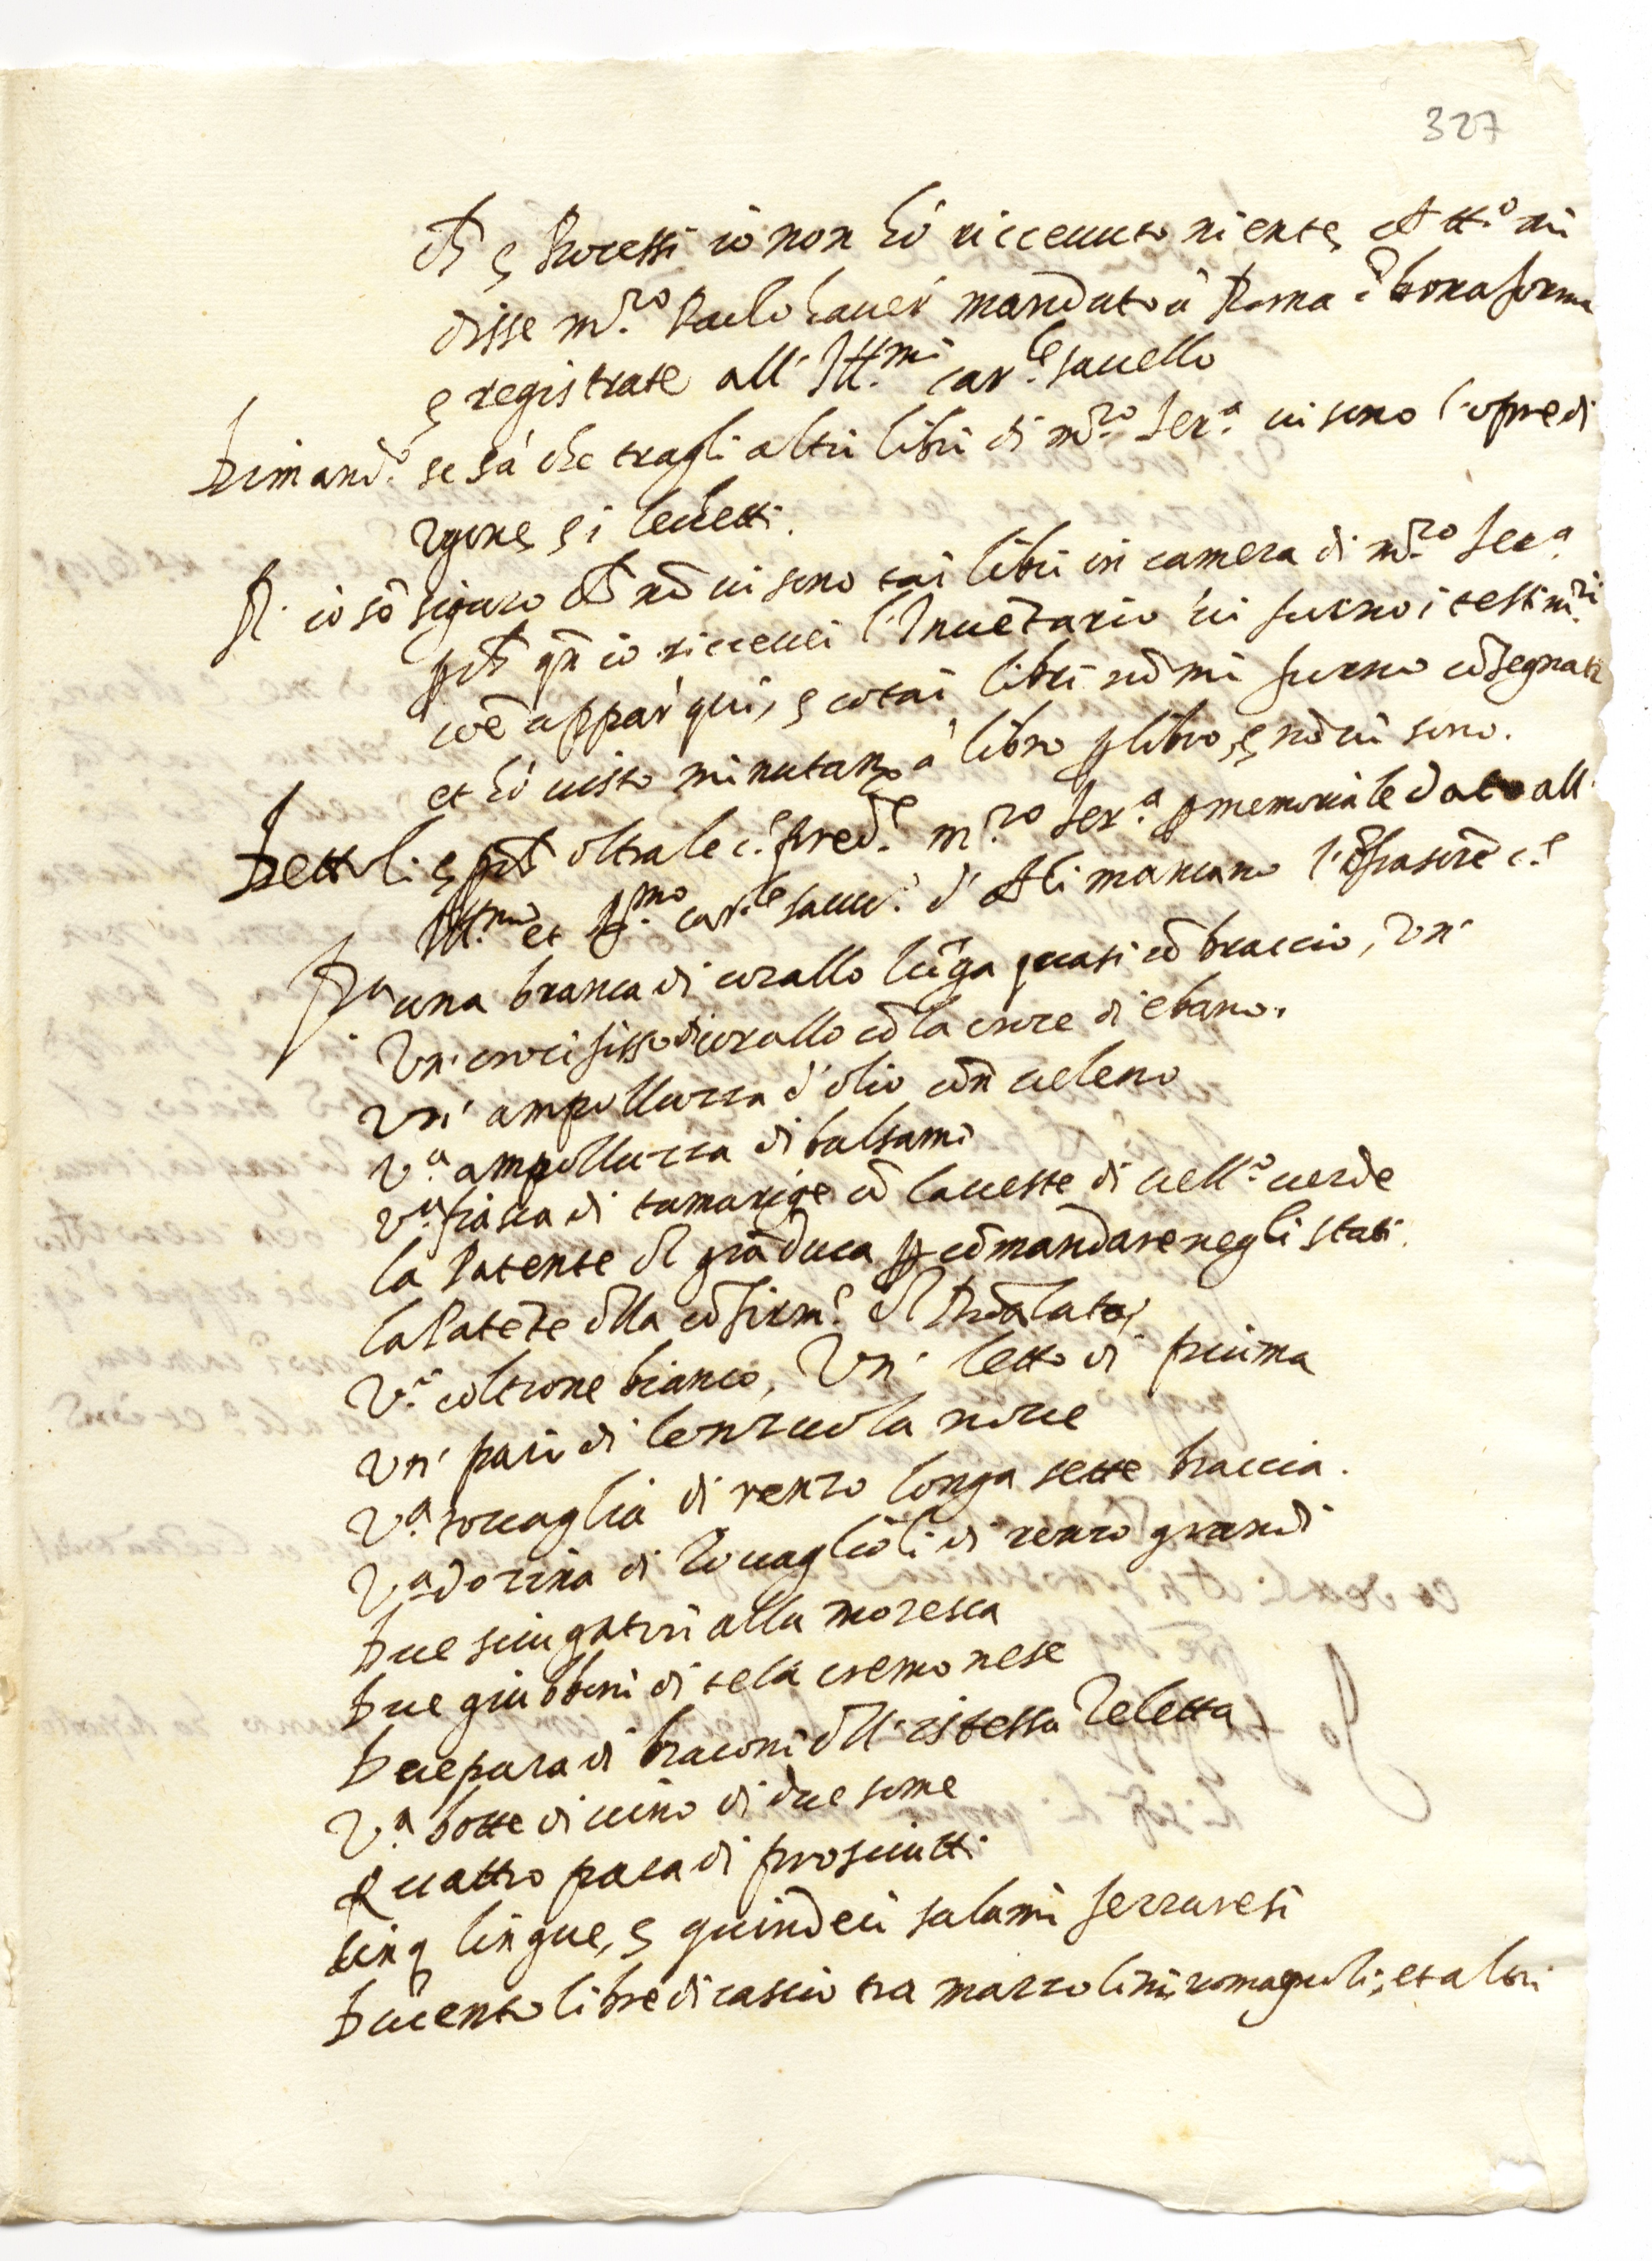 327
ch' e Processi io non hò riccevuto niente, et tt.o mi
disse m.ro Paulo haver mandato à Roma ĩ bona forma
e registrate all' Ill.mi Car.le Savello
Dimand.o se sà che tragli altri libri di m.ro Ser.a vi sono l'opre di
Ugone, e i lecchetti.
R. io sõ siguro ch' nõ vi sono tai libri in camera di m.ro Ser.a
pch' qñ io riccevei l'Invẽtario vi furno i testim.ri
coẽ appar qui, e cotai libri nõ mi furno cõsegnati
et hò visto minutam. à libro p libro, e nõ vi sono.
Dettoli, e pch' oltra le c.e pred.e m.ro Ser.a p memoriale dato all'
Ill.mo et R.mo car.le Sav.o d' ch li mancano l'ĩfrascrẽ c.e
P.a una branca di corallo lũga quasi cõ braccio, un'
Un' crocifisso di corallo cõ la croce di ebano.
Un' ampolluzza d'olio cõn veleno
U.a ampolluzza di balsamo
U.a fiasca di tamarige cõ la veste di vell.o verde
la Patente dl grã Duca p cõmandare negli stati.
la Patẽte dlla cõfirm.e dl
U.o coltrone bianco, Un' letto di piuma
Un' paro di lenzuola nove
U.a tovaglia di renzo longa sette braccia.
U.a dozina di tovaglioli di renzo grandi
Due sciugatori alla moresca
Due giubboni di tela cremonese
Due para di braconi dll' istessa teletta
U.a botte di vino di due some
Quattro para di prosciutti
Cinq lingue, e quindeci salami ferraresi
Ducento libre di cascio tra marzolini, romagnoli, et altri